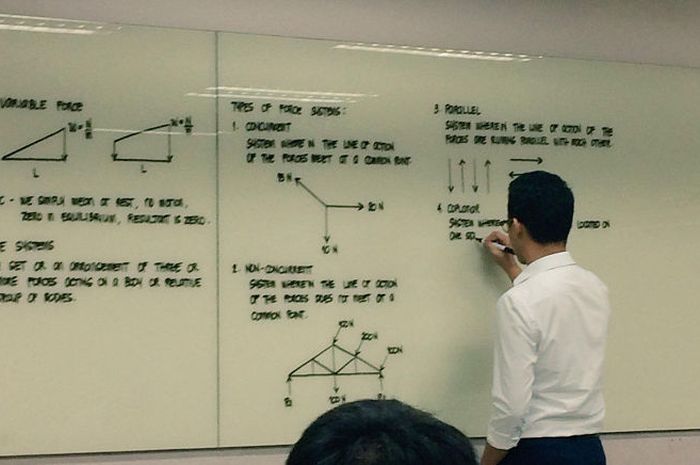 VARIABLE FORCE
L
L
C - WE SIMPLY MEAN AT REST, NO MOTION,
ZERO IN EQUILIBRIUM, RESULTANT IS ZERO.
E SYSTEMS
SET OR AN ARRANGEMENT OF THREE OR
MORE FORCES ACTING ON A BODY OR RELATIVE
GROUP OF BODIES.
TYPES OF FORCE SYSTEMS:
1. CONCURRENT
SYSTEM WHERE IN THE LINE OF ACTION
OF THE FORCES MEET AT A COMMON POINT.
15 N
20 N
10 N
2. NON-CONCURRENT
SYSTEM WHEREIN THE LINE OF ACTION
OF THE FORCES DOES NOT MEET AT A
COMMON POINT.
100N
200N
400N
100 N
3. PARALLEL
SYSTEM WHEREIN THE LINE OF ACTION OF THE
FORCES ARE RUNNING PARALLEL WITH EACH OTHER.
4. COPLANAR
SYSTEM WHERE LOCATED ON
ONE